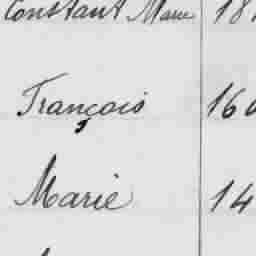 Constant Marie 18
François 160
Marie 14